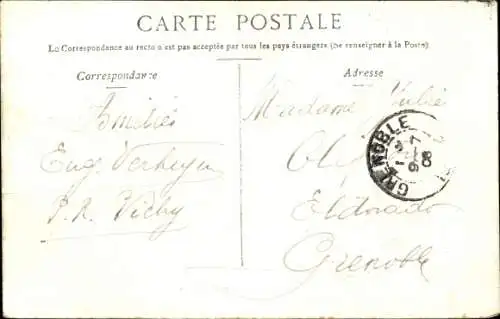 CARTE POSTALE
La Correspondance au recto n'est pas acceptée par tous les pays étrangers (Se renseigner à la Poste)
Correspondance
Adresse
Amitiés
Eug. Verheyen
P. R. Vichy
Madame
Eldorado
Grenoble
GRENOBLE
9-7
08